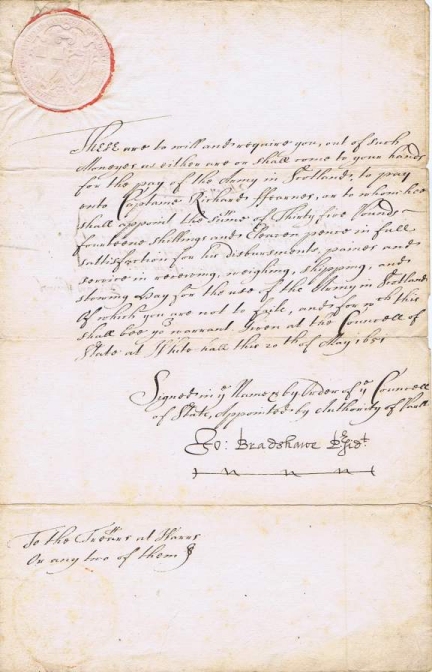 These are to will and require you, out of such
Moneyes as either are or shall come to your hands
for the pay of the Army in Scotland, to pay
unto Captaine Richard ffearnes, or to whom hee
shall appoint the summe of Thirty five Pounds
fourteene shillings and Eleaven pence in full
sattisfaction for his disbursments, paines and
service in receiving, weighing, shipping, and
stowing Hay for the use of the Army in Scotland
Of which you are not to fayle, and for wch this
shall bee yor warrant Given at the Councell of
State at White hall this 20th of May 1651
Signed in ye Name & by Order of ye Councell
of State, Appointed by Authority of Parlt
Jo: Bradshawe Presidt
To the Trérs at Warrs
Or any two of them